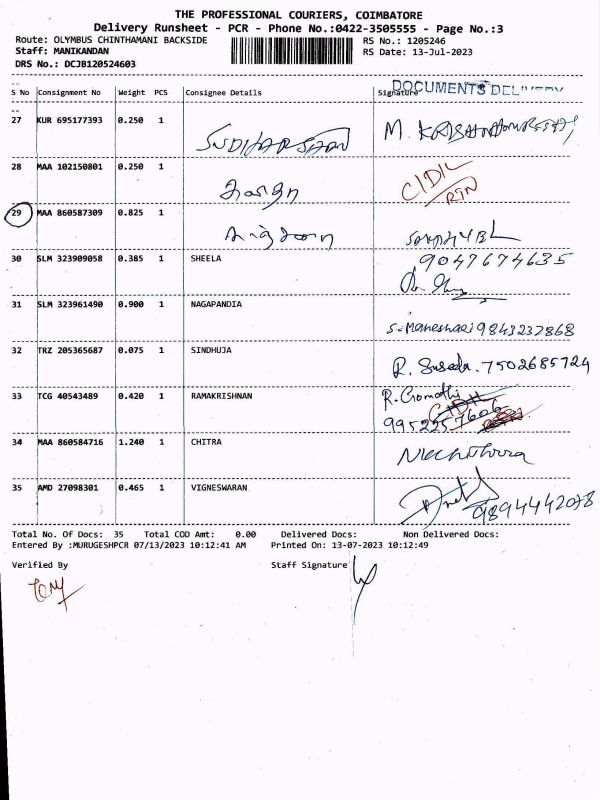 THE PROFESSIONAL COURIERS, COIMBATORE
Delivery Runsheet - PCR - Phone No.:0422-3505555 - Page No.:3
Route: OLYMBUS CHINTHAMANI BACKSIDE RS No.: 1205246
Staff: MANIKANDAN RS Date: 13-Jul-2023
DRS No.: DCJB120524603
DOCUMENTS
S No Consignment No Weight PCS Consignee Details Signature
27 KUR 695177393 0.250 1 SUDHARSHAN
28 MAA 102150801 0.250 1
RTN
29 MAA 860587309 0.825 1
30 SLM 323909058 0.385 1 SHEELA 9047674635
31 SLM 323961490 0.900 1 NAGAPANDIA
S. Maheshwari 9843237868
32 TRZ 205365687 0.075 1 SINDHUJA
R. Suseela. 7502685724
33 TCG 40543489 0.420 1 RAMAKRISHNAN R. Gomathi
34 MAA 860584716 1.240 1 CHITRA
35 AMD 27098301 0.465 1 VIGNESWARAN
9894442078
Total No. Of Docs: 35 Total COD Amt: 0.00 Delivered Docs: Non Delivered Docs:
Entered By :MURUGESHPCR 07/13/2023 10:12:41 AM Printed On: 13-07-2023 10:12:49
Verified By Staff Signature